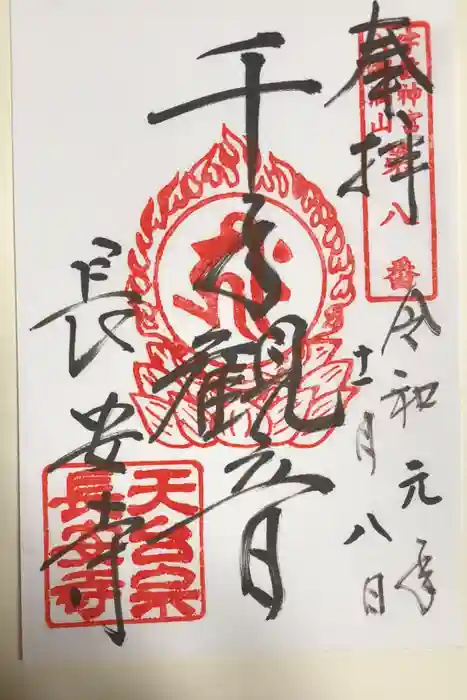 奉拝
宇佐神宮
六郷満山
第八番
令和元年
十一月八日
千手観音
長安寺
天台宗
長安寺